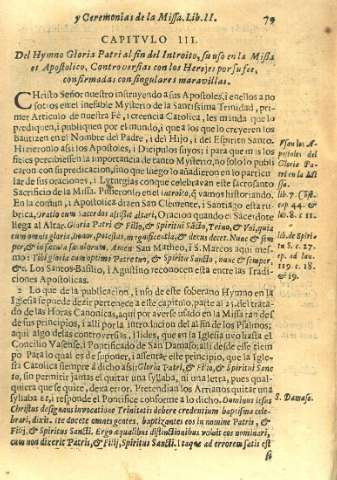 y Ceremonias de la Missa. Lib. II. 79
CAPITVLO III.
Del Hymno Gloria Patri al fin del Introito, su uso en la Missa
es Apostolico, Controversias con los Herejes por su fee,
confirmadas con singulares maravillas.
CHristo Señor nuestro instruyendo a sus Apostoles, i en ellos a no
sotros en el inefable Mysterio de la Santissima Trinidad, pri-
mer Articulo de nuestra Fé, i creencia Catolica, les manda que lo
prediquen, i publiquen por el mundo, i que a los que lo creyeren los
Bauticen en el Nombre del Padre, i del Hijo, i del Espiritu Santo.
Hizieronlo assi los Apostoles, i Dicipulos suyos; i para que mas los
fieles percibiessen la importancia de tanto Mysterio, no solo lo publi-
caron con su predicacion, sino que luego lo añadieron en lo particu
lar de sus oraciones, i Liturgias con que celebravan este sacrosanto
Sacrificio de la Missa. Pusieronlo en el introito, q̃ vamos historiando.
En la costũ, i Apostolica dizen San Clemente, i Santiago esta ru-
brica, Oratio cum sacerdos ascendit altari, Oracion quando el Sacerdote
llega al Altar. Gloria Patri & Filio, & Spiritui Sãcto, Trino, & Vni, quia
cum omnis gloria, honor, & magnificentia, & decus decet. Nunc & sem
per, & in secula sæculorum. Amen. San Matheo, i S. Marcos aqui mes-
mo: Tibi gloria cum optimo Patre tuo, & Spiritu Sancto, nunc & semper,
&c. Los Santos Basilio, i Agustino reconocen esta entre las Tradi-
ciones Apostolicas.
2 Lo que de la publicacion, i uso de este soberano Hymno en la
Iglesia se puede dezir pertenece a este capitulo, parte al 21. del trata-
do de las Horas Canonicas, aqui por averse usado en la Missa ran des
de sus principios, i alli por la introduccion del al fin de los Psalmos;
aqui algo de las controversias, i lides, que en la Iglesia uvo hasta el
Concilio Vasense, i Pontificado de San Damaso; alli desde esse tiem
po. Para lo qual es de suponer, i assentar este principio, que la Igle-
sia Catolica siempre à dicho assi: Gloria Patri, & Filio, & Spiritui San-
to, sin permitir jamas el quitar una syllaba, ni una letra, pues qual-
quiera que se quite, dexa error. Pretendian los Arrianos quitar una
syllaba &, i responde el Pontifice conforme a lo dicho. Dominus Iesus
Christus designans invocatione Trinitatis debere credentium baptisma cele-
brari, dixit, ite docete omnes gentes, baptizantes eos in nomine Patris, &
Filij, & Spiritus Sancti. Ergo æqualibus distinctionibus voluit eos nominari,
cum non dixerit Patris, & Filij, Spiritus Sancti. Itaque ad errorem satis est
si
Usan los A-
postoles del
Gloria Pa-
tri en la Mi
ssa.
lib. 7. Cõst.
cap. 44. &
lo. 8. c. 11.
lib. de Spiritu
S. c. 27.
ep. ad Ian.
119. c. 18.
& 19.
S. Damaso.